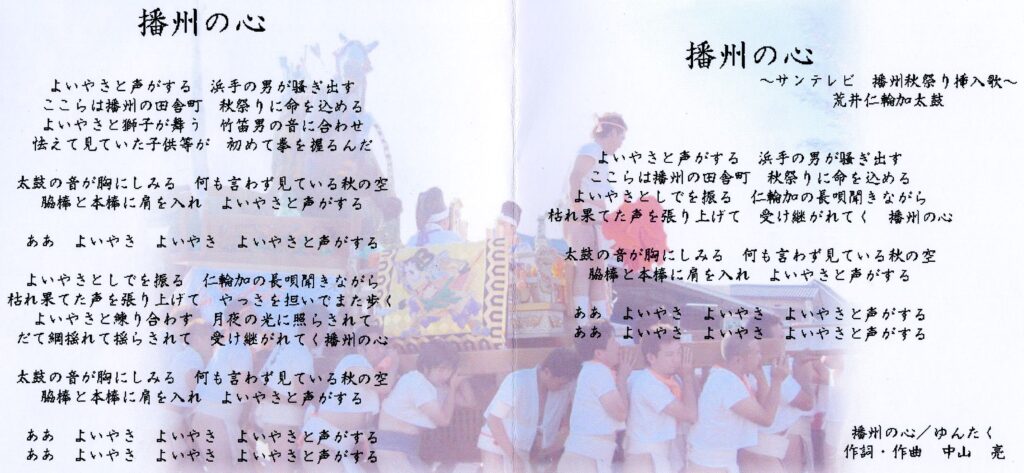 播州の心
よいやさと声がする　浜手の男が騒ぎ出す
ここらは播州の田舎町　秋祭りに命を込める
よいやさと獅子が舞う　竹笛男の音に合わせ
怯えて見ていた子供等が　初めて拳を握るんだ
太鼓の音が胸にしみる　何も言わず見ている秋の空
脇棒と本棒に肩を入れ　よいやさと声がする
ああ　よいやさ　よいやさ　よいやさと声がする
よいやさとしでを振る　仁輪加の長唄聞きながら
枯れ果てた声を張り上げて　やっさを担いでまた歩く
よいやさと練り合わす　月夜の光に照らされて
だて綱揺れて揺らされて　受け継がれてく播州の心
太鼓の音が胸にしみる　何も言わず見ている秋の空
脇棒と本棒に肩を入れ　よいやさと声がする
ああ　よいやさ　よいやさ　よいやさと声がする
ああ　よいやさ　よいやさ　よいやさと声がする
播州の心
～サンテレビ　播州秋祭り挿入歌～
荒井仁輪加太鼓
よいやさと声がする　浜手の男が騒ぎ出す
ここらは播州の田舎町　秋祭りに命を込める
よいやさとしでを振る　仁輪加の長唄聞きながら
枯れ果てた声を張り上げて　受け継がれてく　播州の心
太鼓の音が胸にしみる　何も言わず見ている秋の空
脇棒と本棒に肩を入れ　よいやさと声がする
ああ　よいやさ　よいやさ　よいやさと声がする
ああ　よいやさ　よいやさ　よいやさと声がする
播州の心／ゆんたく
作詞・作曲　中山　亮